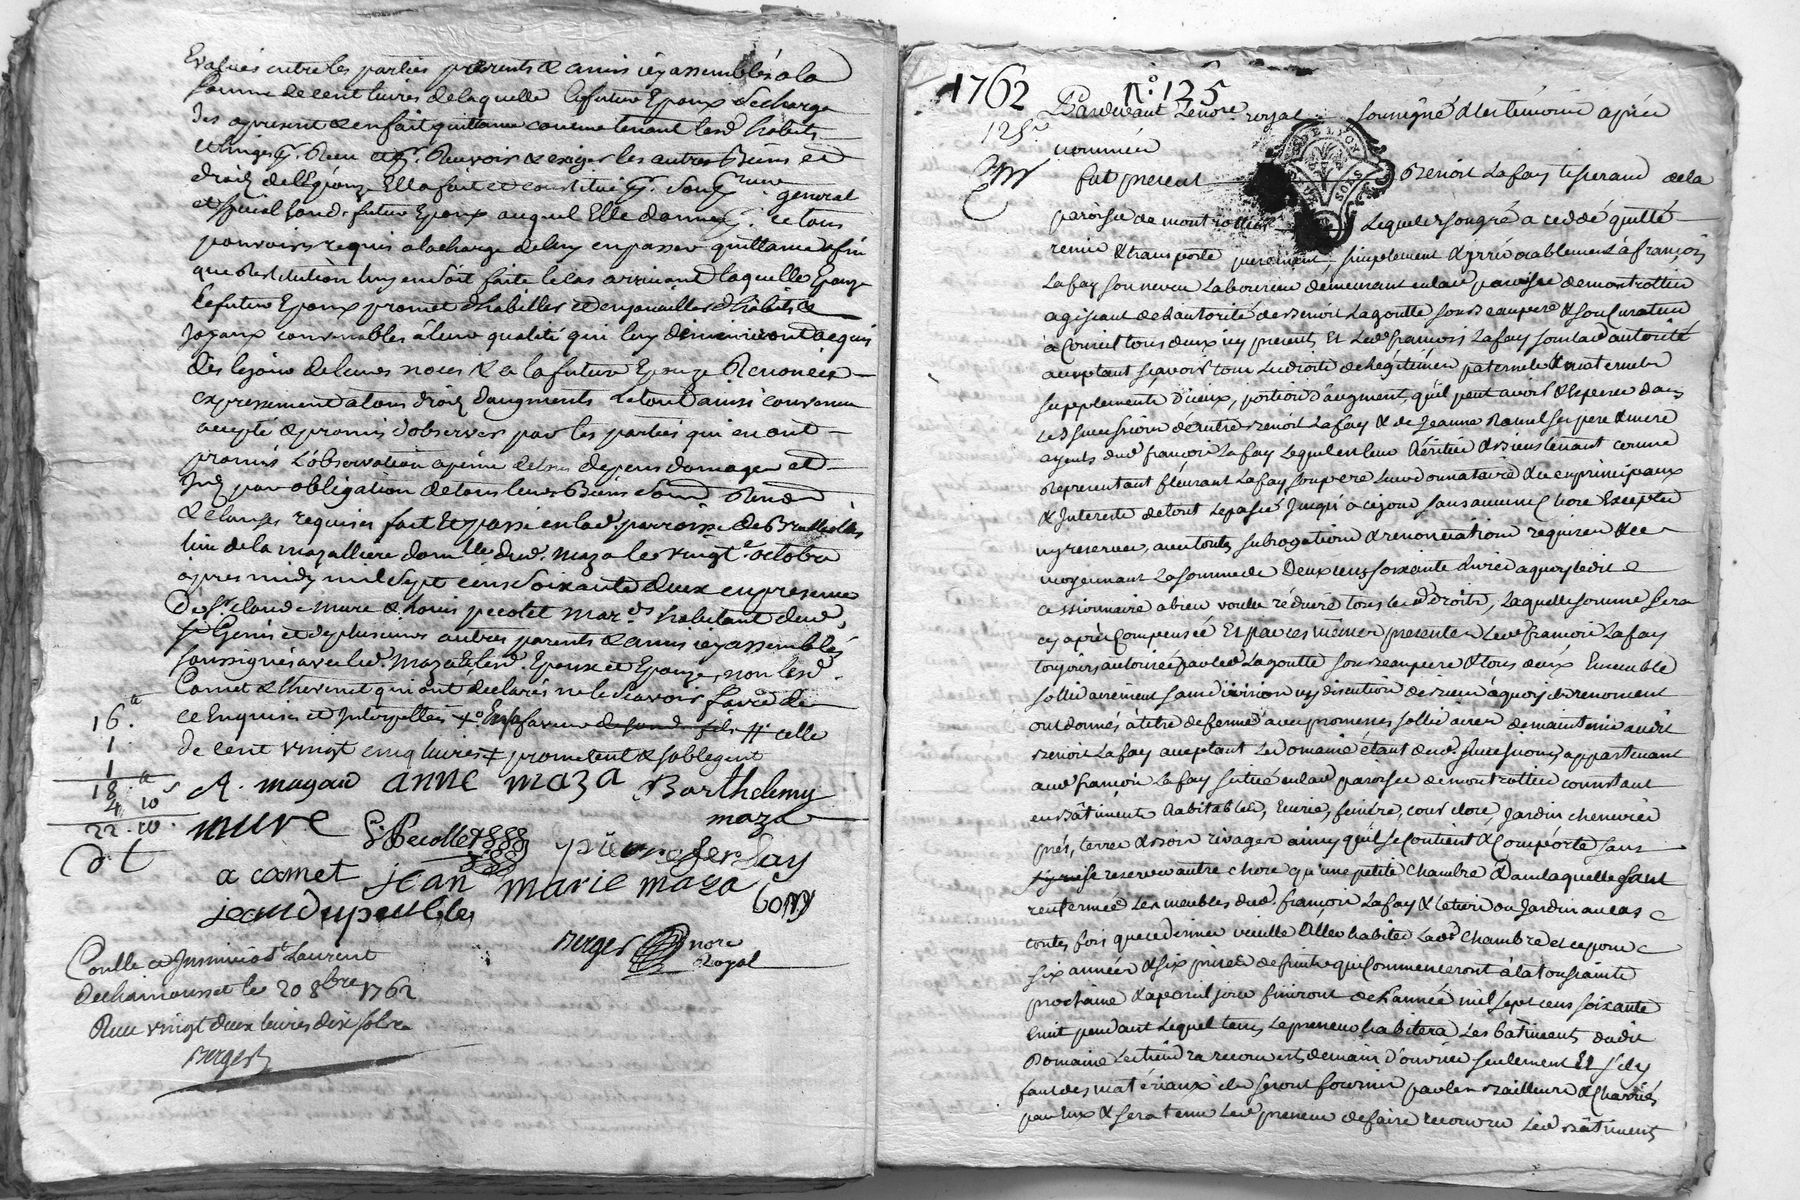 Evalués entre les parties parents & amis icy assemblés a la
somme de cent livres de laquelle le futur Epoux se charge
des apresent & en fait quittance comme tenant lesd. habits
et linges pr. Reçu et pr. Recevoir & exiger les autres Biens et
droits de l'Epouze Elle a fait et constitué pr. son pr. general
et special sond. futur Epoux auquel Elle donne tous
pouvoirs requis a la charge de luy en passer quittance afin
que Restitution luy en soit faite le cas arrivant laquelle Epouze
le futur Epoux promet d'habiller et enjouailler d'habits &
Joyaux convenables à leur qualité qui luy demeureront acquis
dès le jour de leurs noces & a la future Epouze Renoncée
expressement a tous droits d'augments Le tout ainsi convenu
accepté & promis d'observer par les parties qui en ont
promis L'observation a peine de tous depens domages et
par obligation de tous leurs Biens
& clauses requises fait et passé en lad. parroisse de Brullioles
lieu de la mazalliere domlle. dud. maza le vingt octobre
après midy mil sept cens soixante deux en presence
de Sr. claude mure & Louis pecolet mar.ds habitant dud.
St Genis et de plusieurs autres parents & amis icy assemblés
soussignés avec led. maza & lesd. Epoux et Epouze, non lesd.
Camet & thevenet qui ont declarés ne le sçavoir faire de
ce Enquis et Interpellés
de cent vingt cinq livres + promettent & s'obligent
16
1
1
18
4 10
22 . 10
A. magaud anne maza Barthelemy
maza
mure Pecollet pierre Jersay
a camet jean marie maza
jean dupeubles
Berger nore
Royal
Conllé et Insinué a St. Laurent
de chamousset le 20 8bre 1762
Reçu vingt deux livres dix sols
Berger
1762 N°. 125
125e
Pardevant Le nore. royal soussigné & les temoins après
nommés
GEN DE LYON
SOLS
fut present Benoit Lafay tisserand de la
paroisse de montrottier Lequel de son gré a cedé quitté
remis & transporté purement, simplement & irrévocablement à françois
Lafay son neveu Laboureur demeurant en lad. paroisse de montrottier
agissant de L'autorité de Benoit Lagoutte son Beaupere & son Curateur
à Conseil tous deux icy presents Et Led. françois Lafay sous lad. autorité
acceptant sçavoir tous Les droits de Legitimes paternelle & maternelle
supplements d'iceux, portion d'augment, qu'il peut avoir & esperer dans
Les successions d'entre Benoit Lafay & de Jeanne Ramel ses pere & mere
ayeuls dud. françois Lafay Lequel est leur héritier & Bientenant comme
Representant fleurant Lafay son pere leur donnataire & ce en principaux
& Interets de tout Le passé Jusqu'à ce jour sans aucune chose Excepter
ny reserver, avec toutes subrogations & renonciations requises & ce
moyennant La somme de Deux cens soixante livres a quoy ledit
cessionnaire a bien voulu réduire tous lesd. droits, laquelle somme sera
cy après Compensée Et par ces mêmes presentes Led. françois Lafay
toujours autorisé par led. Lagoutte son Beaupere & tous deux Ensemble
sollidairement sans division ny discution de Biens à quoy ils renoncent
ont donnés à titre de ferme avec promesses sollidaires de maintenir audit
Benoit Lafay acceptant Le Domaine étant desd. successions, appartenant
aud. françois Lafay situé en lad. paroisse de montrottier consistant
en Bâtiments habitables, Ecurie, feniere, cour close, Jardin cheneviere
prés, terres & Bois rivages ainsy qu'il se Contient & Comporte sans
se reserver autre chose qu'une petite Chambre Dans laquelle sont
renfermés Les meubles dud. françois Lafay & Le tiers du Jardin au cas
toutes fois que ce dernier veuille Aller habiter Lad. Chambre et ce pour
six années & six prises de fruits qui Commenceront à la toussainte
prochaine & a pareil jour finiront de l'année mil sept cens soixante
huit pendant Lequel tems Le preneur habitera Les Bâtiments dudit
Domaine Les tiendra recouverts de main d'ouvrier seulement Et s'il y
faut des matériaux ils seront fournis par les Bailleurs & Charriés
par Eux & sera tenu Led. preneur de faire recouvrir Lesd. Bâtiments